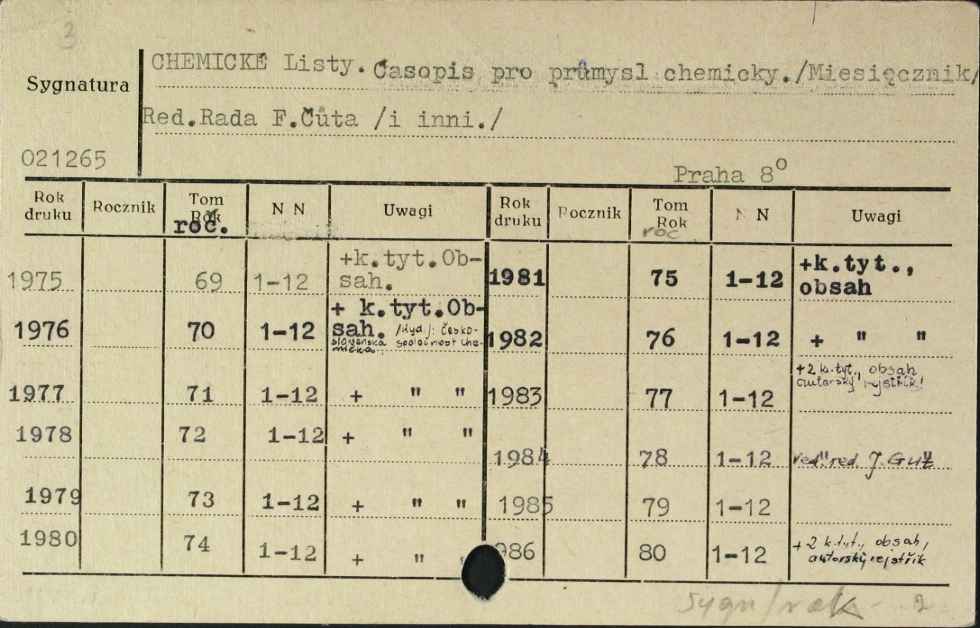 3
CHEMICKÉ Listy. Časopis pro průmysl chemicky./Miesięcznik/
Sygnatura
Red.Rada F.Čůta /i inni./
021265
Praha 8°
Rok druku Rocznik Tom Rok roč. N N Uwagi Rok druku Rocznik Tom Rok roč N N Uwagi
1975 69 1-12 +k.tyt.Ob-
sah.
1981 75 1-12 +k.tyt.,
obsah
1976 70 1-12 + k.tyt.Ob-
sah. /Wyd./: česko-
slovenská společnost che-
mická.
1982 76 1-12 + " "
1977 71 1-12 + " "
1983 77 1-12 +2 k.tyt., obsah
autorský rejstřík!
1978 72 1-12 + " "
1984 78 1-12 ved. red. J. Gut
1979 73 1-12 + " "
1985 79 1-12
1980 74 1-12 + "
986 80 1-12 +2 k.tyt., obsah,
autorský rejstřík
Sygn/rok- 2